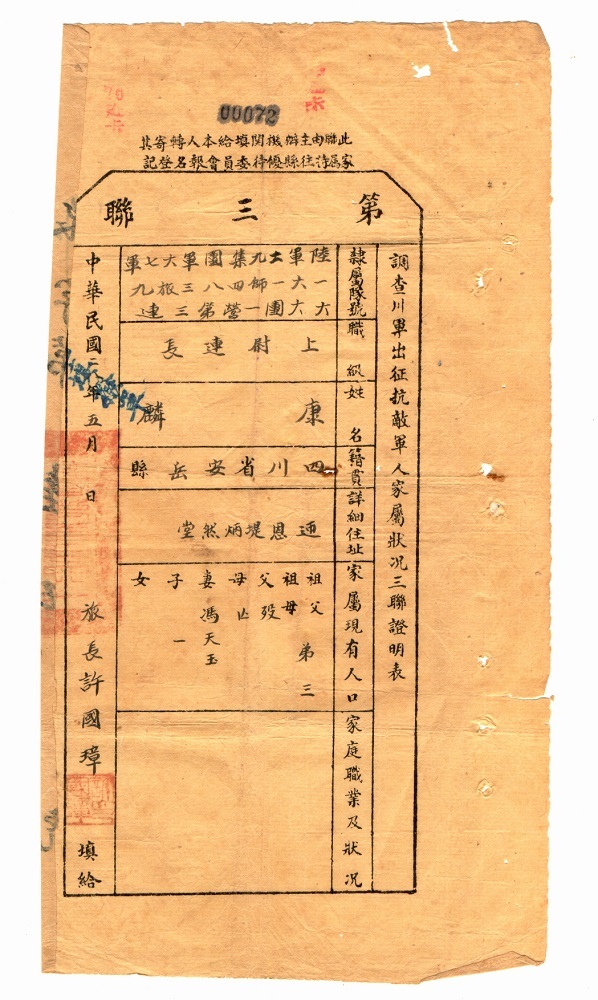 00072
此聯由主辦機關填給本人轉寄其
家屬持往縣優待委員會報名登記
第三聯
調查川軍出征抗敵軍人家屬狀況三聯證明表
隸屬隊號
職級
姓名
籍貫
詳細住址
家屬現有人口
家庭職業及狀況
陸軍廿九集團軍六七軍
一六一師四八三旅九
六六團一營第三連
上尉連長
康麟
四川省安岳縣
通恩堤炳然堂
祖父
祖母
弟三
父歿
母亡
妻馮天玉
子一
女
中華民國 年五月 日 旅長許國璋 填給